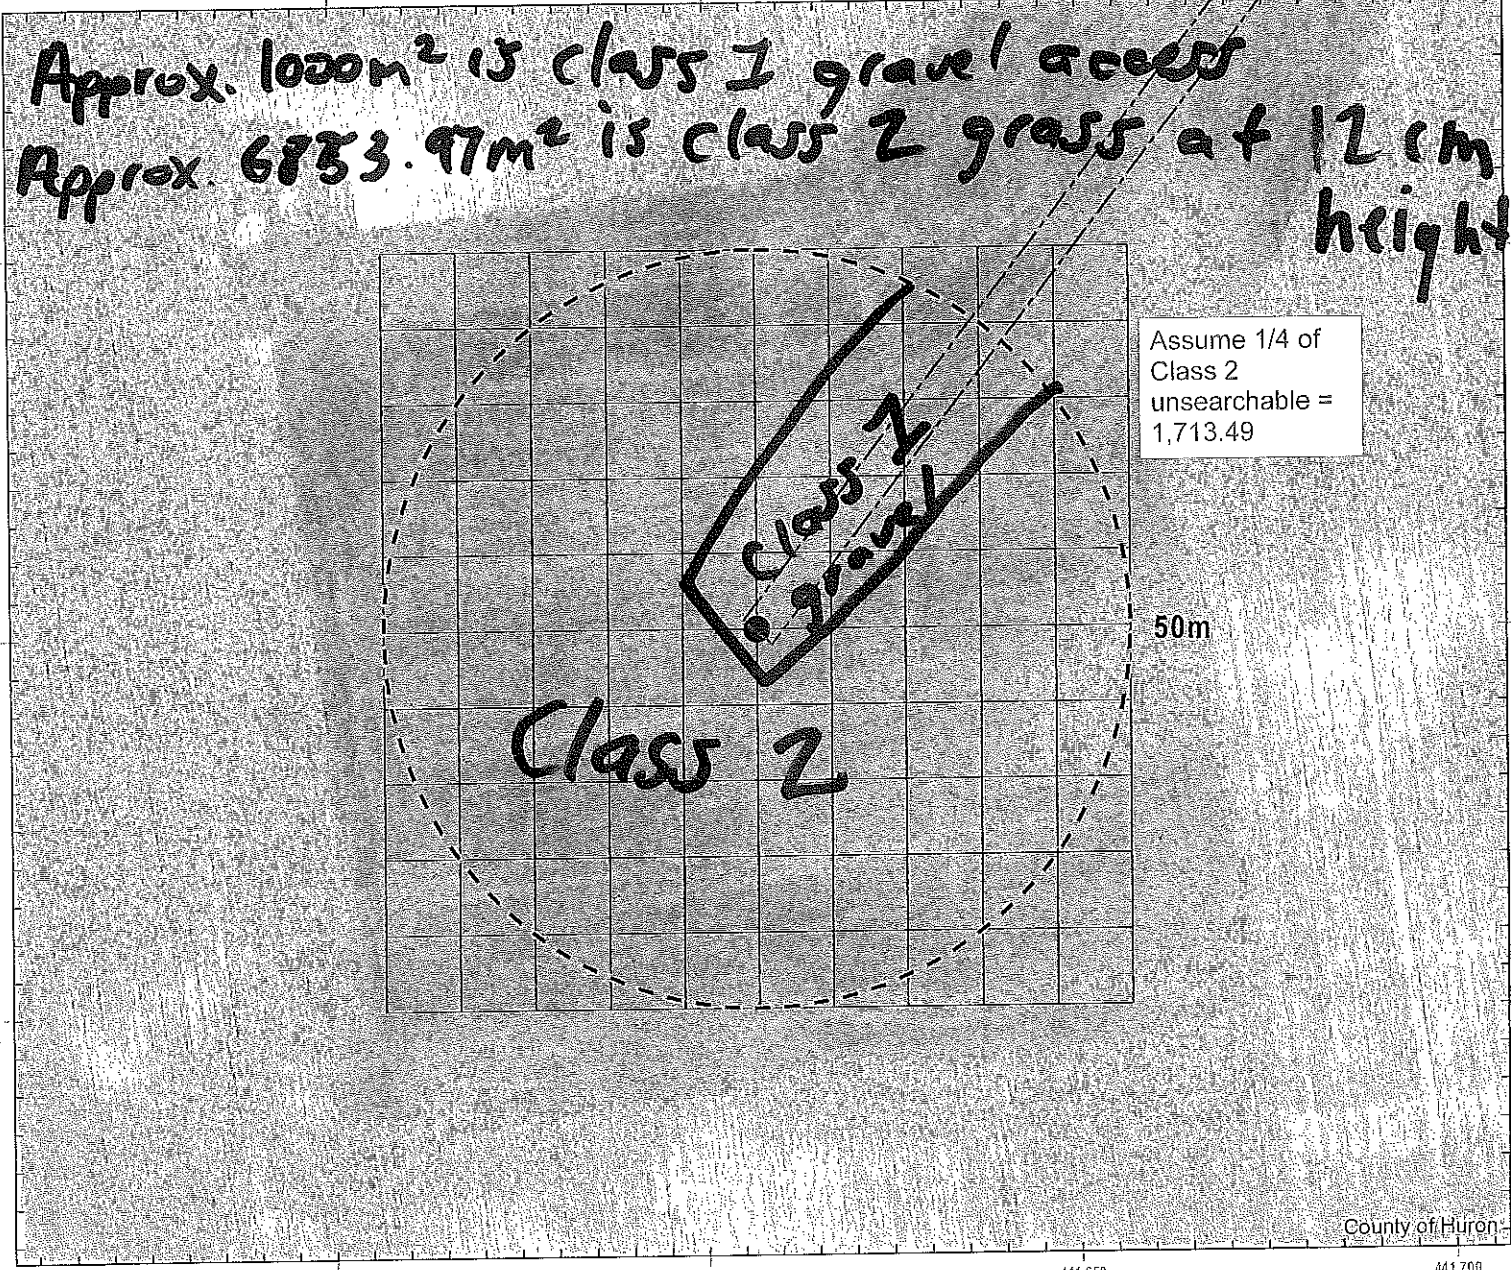 Approx. 1000m² is class 1 gravel access
Approx. 6853.97m² is class 2 grass at 12 cm
height
Assume 1/4 of
Class 2
unsearchable =
1,713.49
Class 1
gravel
50m
Class 2
County of Huron
441,700